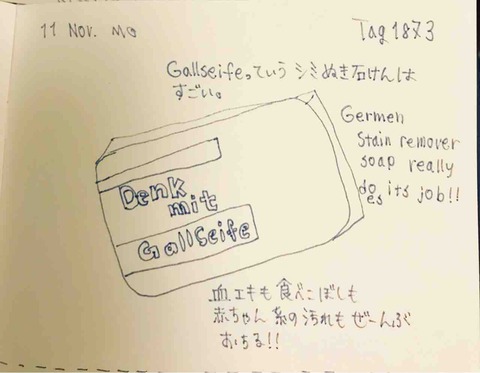 11 Nov. Mo
Tag 1873
Gallseifeっていう シミぬき石けんは
すごい。
Germen
Stain remover
soap really
does its job!!
Denk
mit
Gallseife
血エキも 食べこぼしも
赤ちゃん 系の汚れも ぜーんぶ
おちる!!